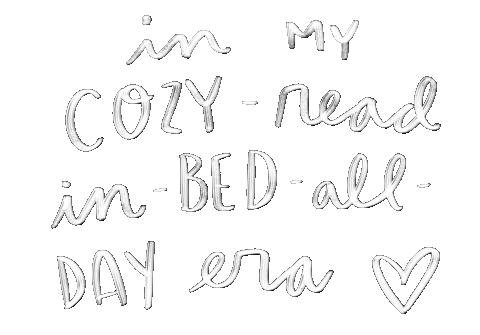 in MY
COZY-read
in-BED-all-
DAY era ♡